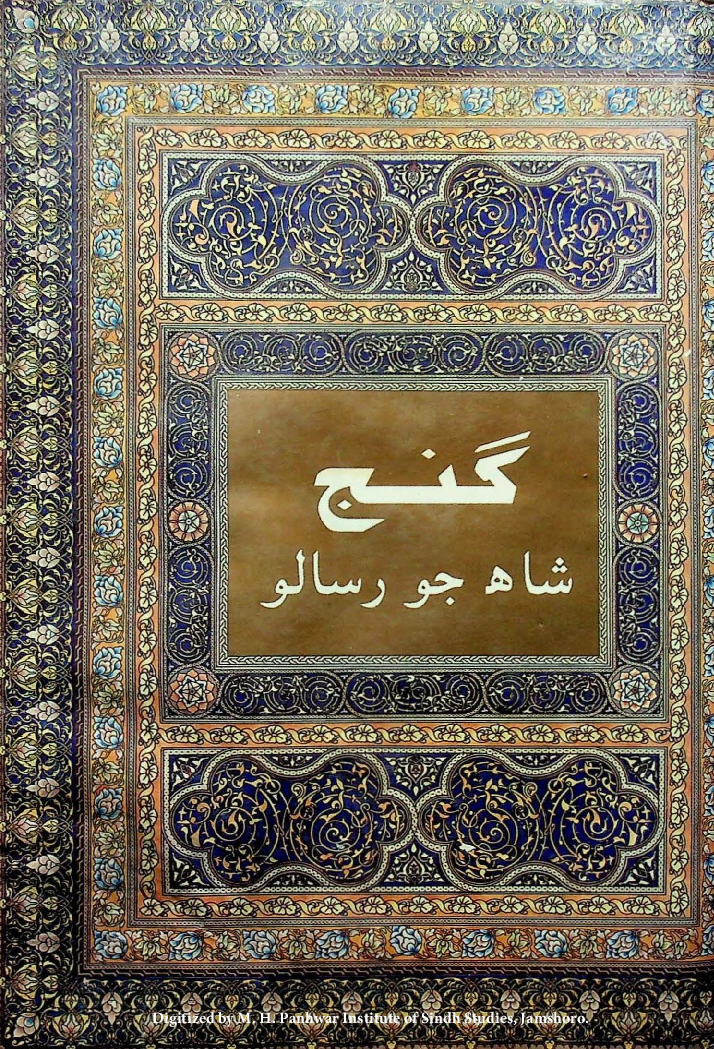 گَنج
شاھ جو رسالو
Digitized by M. H. Panhwar Institute of Sindh Studies, Jamshoro.